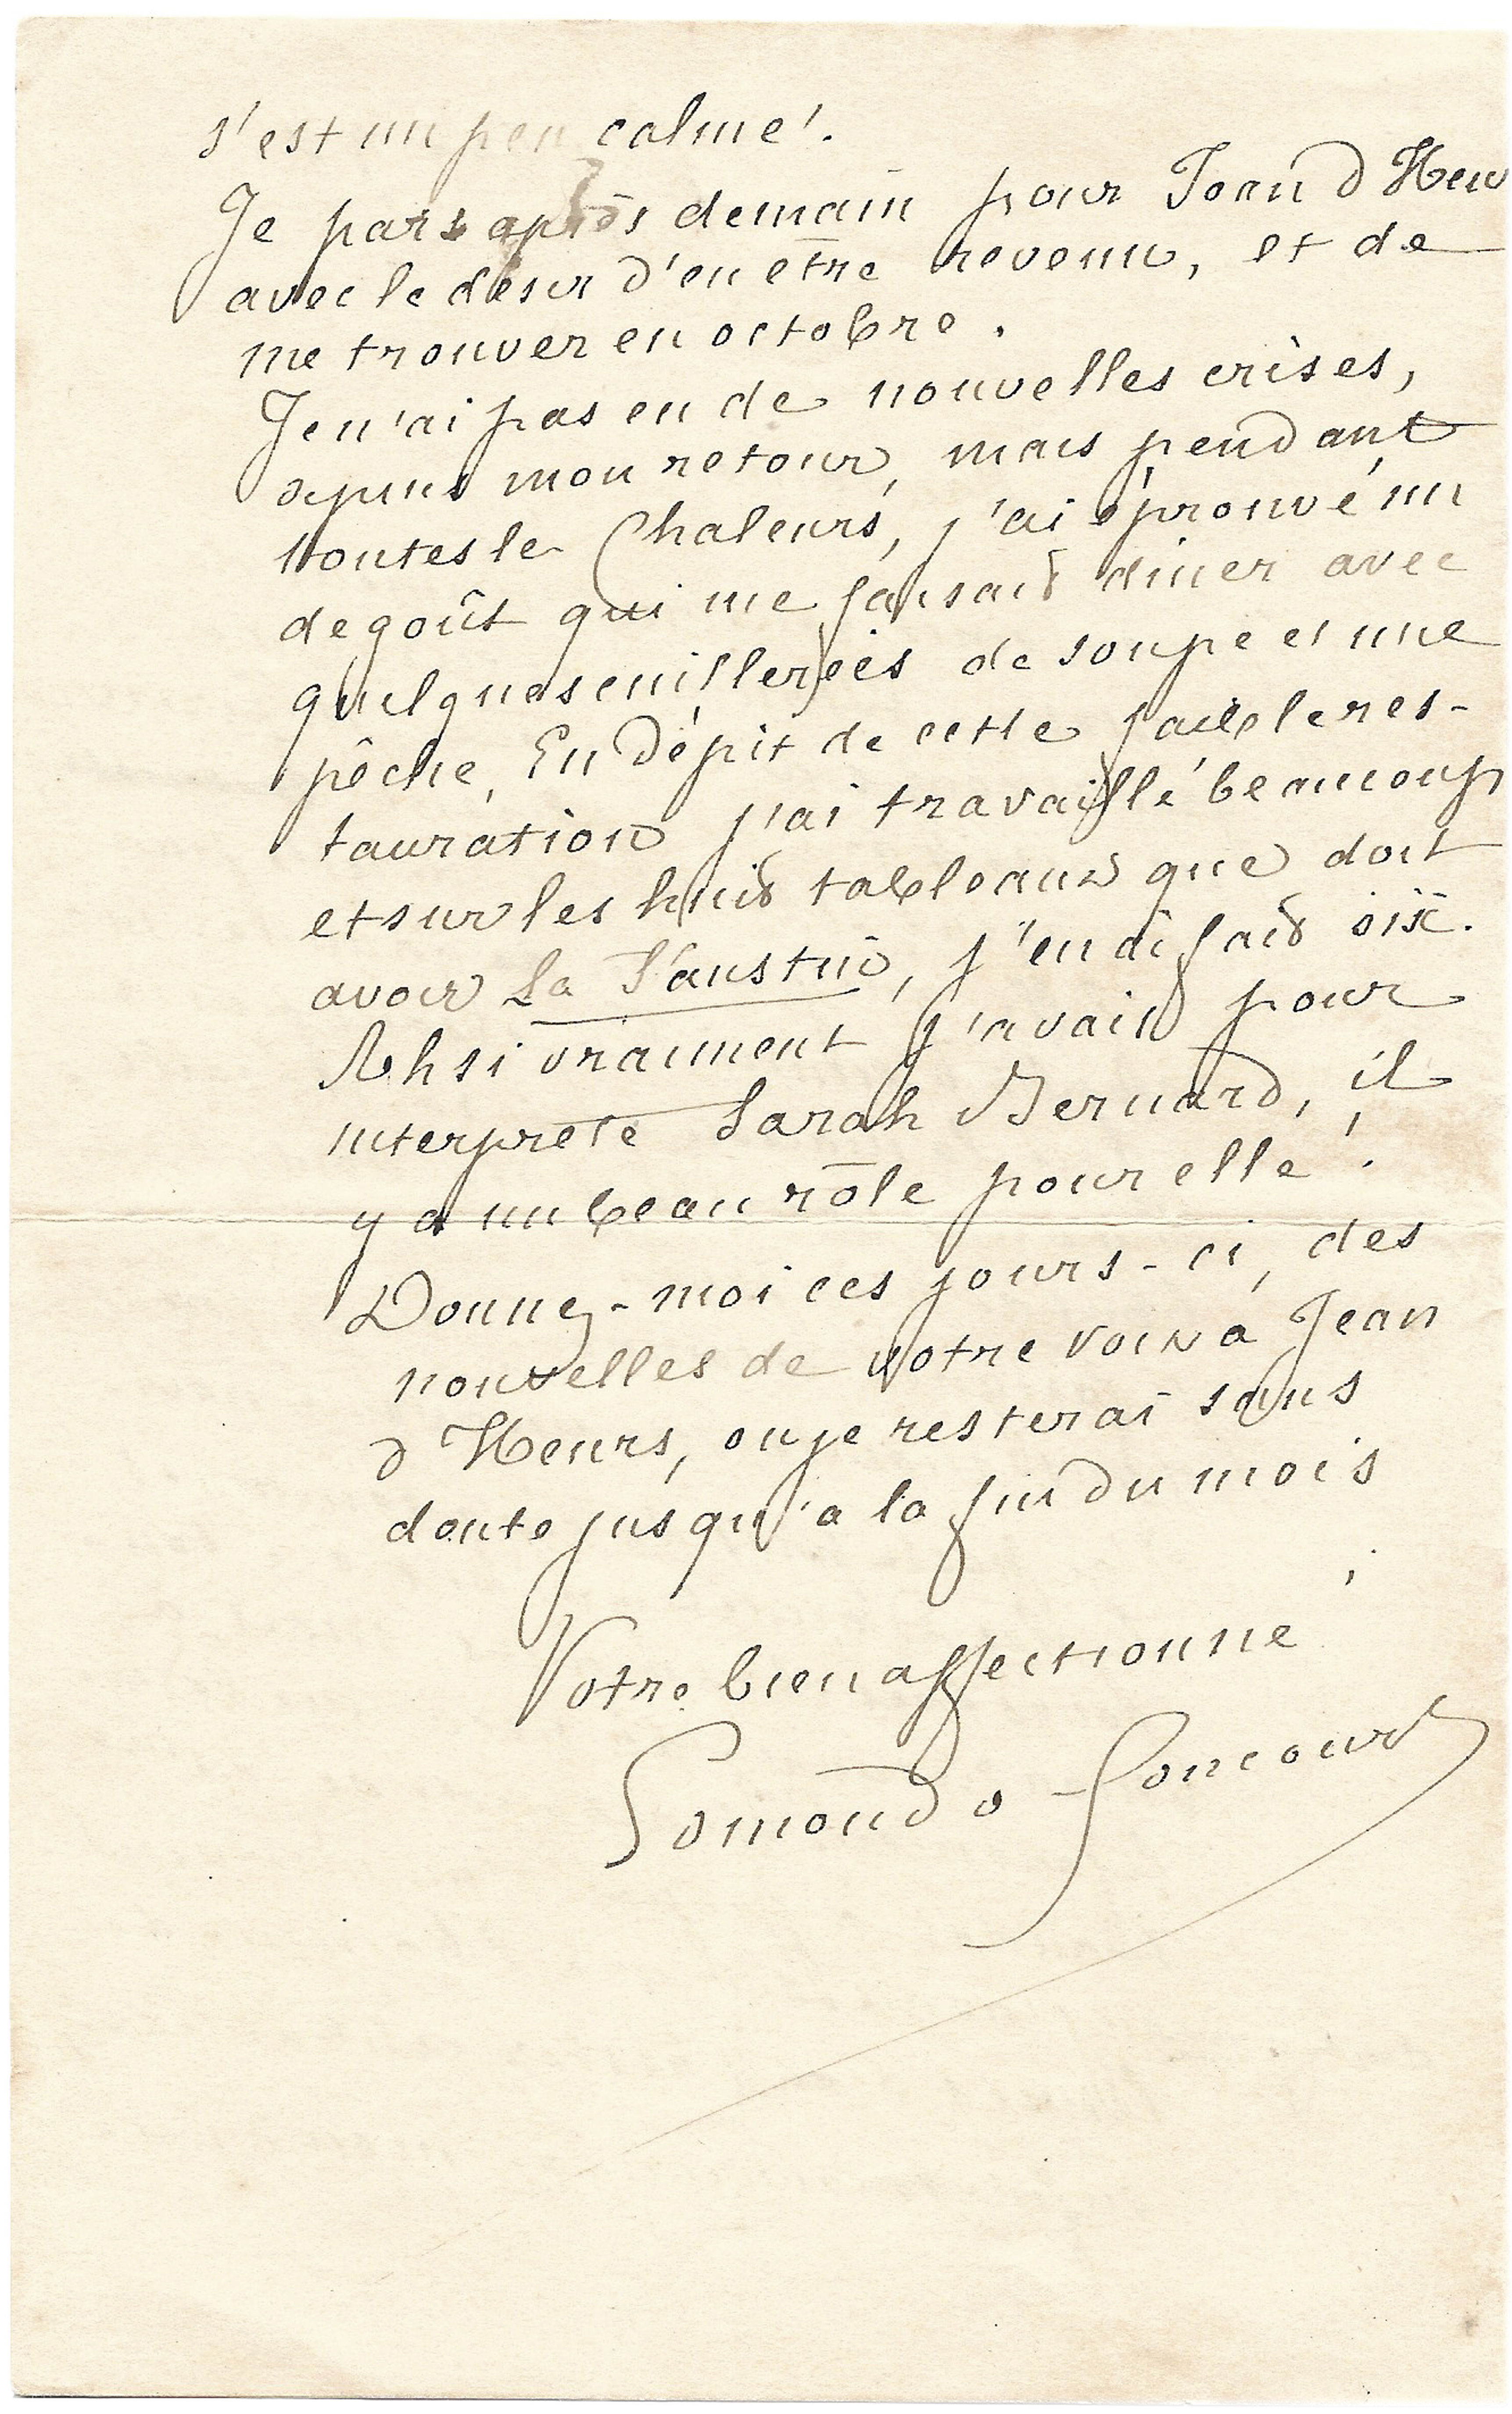 s'est un peu calmé.
Je pars après demain pour Jean d'Heu
avec le désir d'en être revenu, et de
me trouver en octobre.
Je n'ai pas eu de nouvelles crises,
depuis mon retour, mais pendant
toutes le chaleurs, j'ai éprouvé un
degoût qui me faisait diner avec
quelques cuillerées de soupe et une
pêche. En dépit de cette faible res-
tauration j'ai travaillé beaucoup
et sur les huit tableaux que doit
avoir La Faustin, j'en ai fait six.
Ah si vraiment j'avais pour
interprete Sarah Bernard, il
y a un beau rôle pour elle !
Donnez-moi ces jours-ci, des
nouvelles de votre voix a Jean
d'Heurs, ou je resterai sans
doute jusqu'a la fin du mois
Votre bien affectionné
Edmond de Goncourt